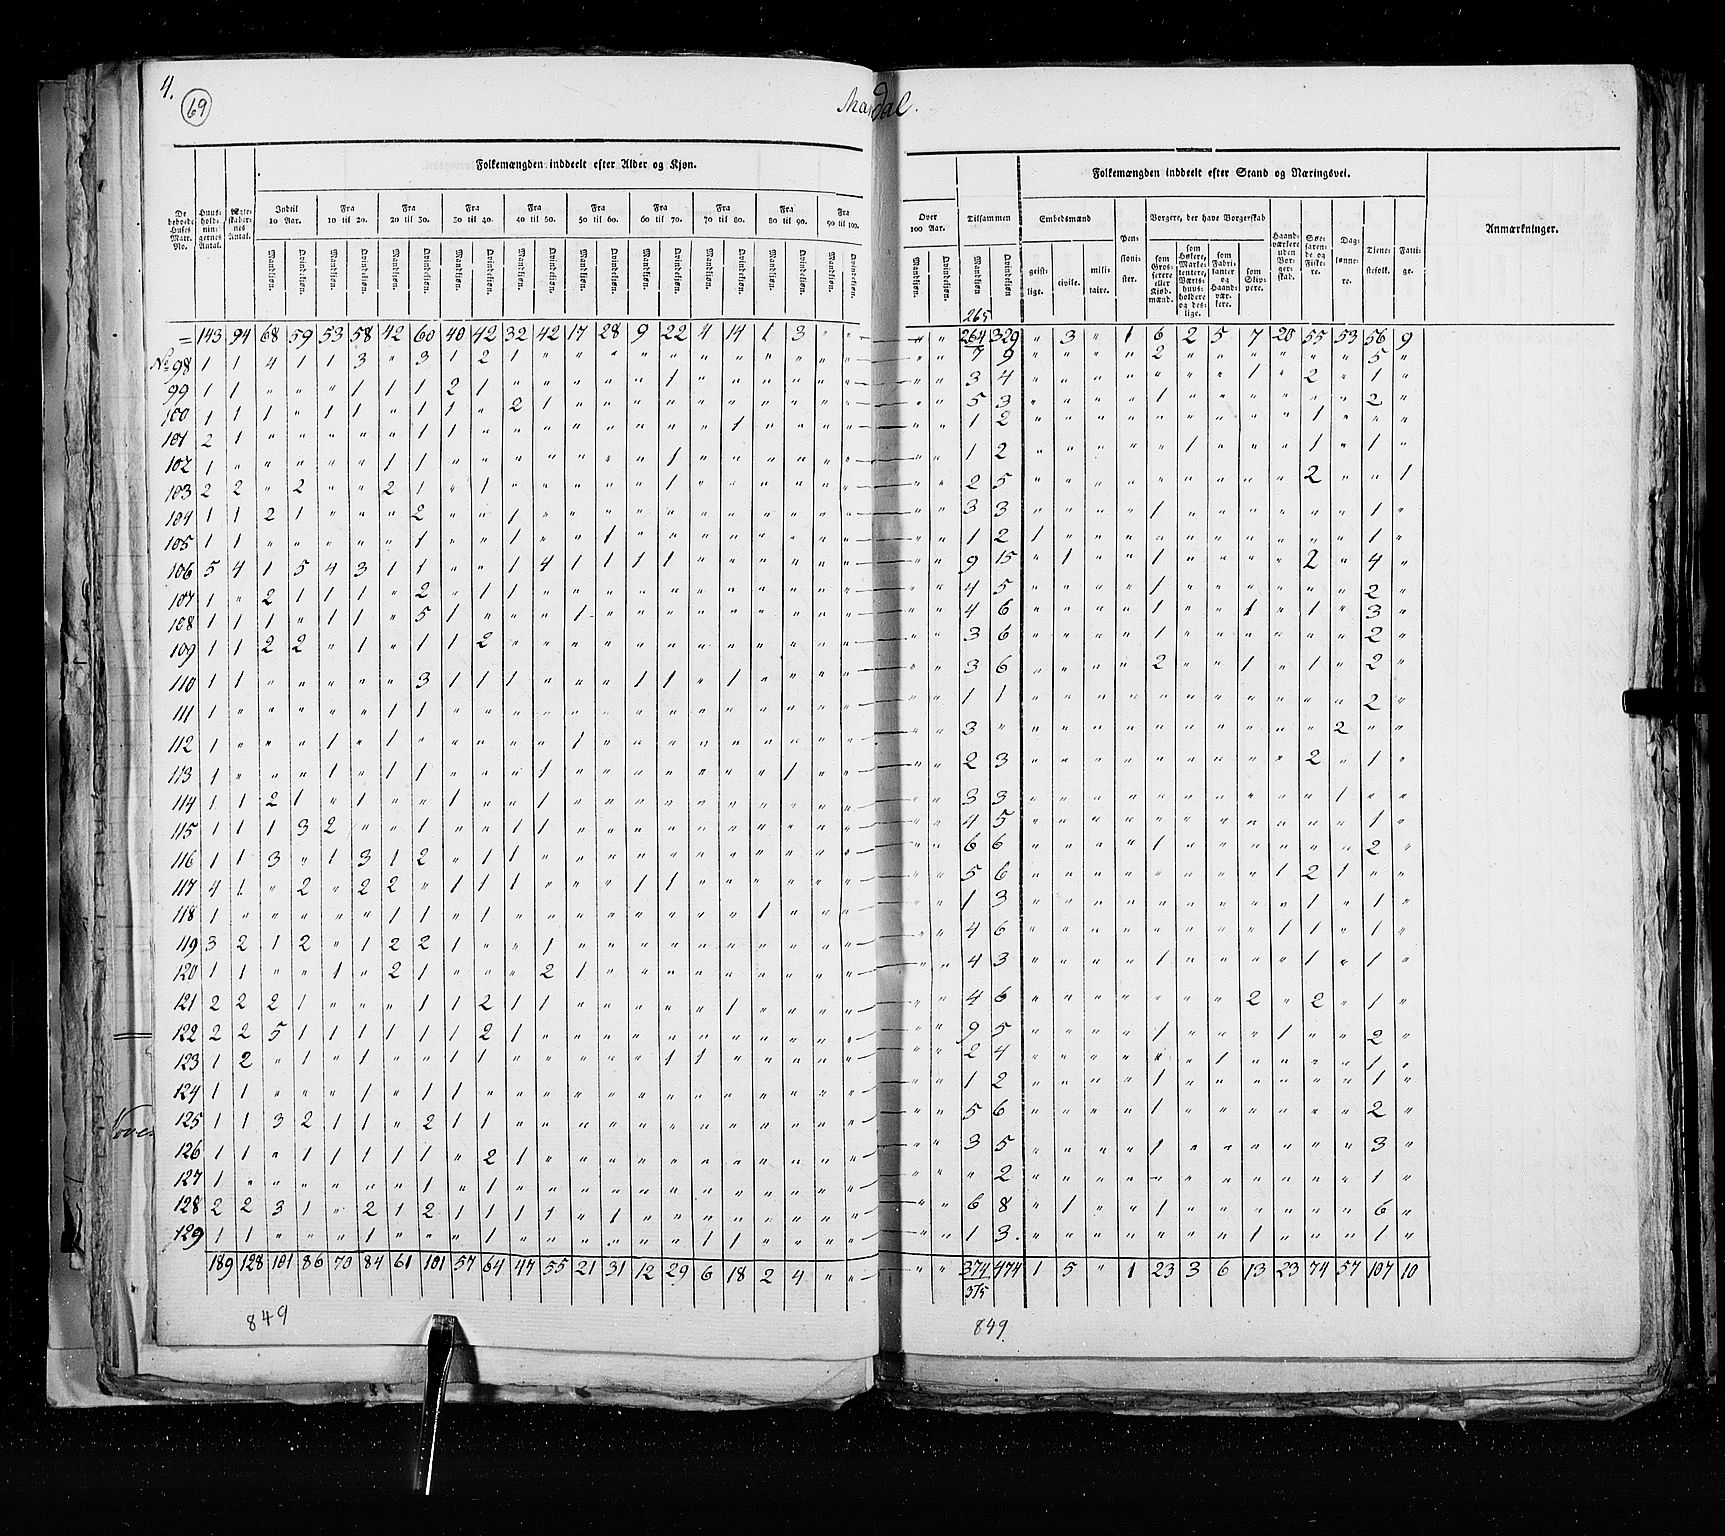 4.
69
Mandal.
Folkemængden inddeelt efter Alder og Kjøn.
Folkemængden inddeelt efter Stand og Næringsvei.
Anmærkninger.
De beboede Huses Matr. No.
Huus-hold-nin-gernes Antal.
Ægte-skaber-nes Antal.
Indtil 10 Aar.
Fra 10 til 20.
Fra 20 til 30.
Fra 30 til 40.
Fra 40 til 50.
Fra 50 til 60.
Fra 60 til 70.
Fra 70 til 80.
Fra 80 til 90.
Fra 90 til 100.
Over 100 Aar.
Tilsammen
Embedsmænd
geist-lige.
civile.
mili-taire.
Pen-sioni-ster.
Borgere, der have Borgerskab
som Gros-serere eller Kjøb-mænd.
som Høkere, Marke-tentere, Værts-huus-holdere og des-lige.
som Fabri-kanter og Haand-vær-kere.
som Skip-pere.
Haand-værkere uden Bor-ger-skab.
Søe-faren-de og Fiske-re.
Dag-lønne-re.
Tiene-stefolk.
Fatti-ge.
Mandkjøn. Qvindekjøn. Mandkjøn. Qvindekjøn. Mandkjøn. Qvindekjøn. Mandkjøn. Qvindekjøn. Mandkjøn. Qvindekjøn. Mandkjøn. Qvindekjøn. Mandkjøn. Qvindekjøn. Mandkjøn. Qvindekjøn. Mandkjøn. Qvindekjøn. Mandkjøn. Qvindekjøn. Mandkjøn. Qvindekjøn. Mandkjøn Qvindekjøn
265
= 143 94 68 59 53 58 42 60 40 42 32 42 17 28 9 22 4 14 1 3 " " " " 264 329 " 3 " 1 6 2 5 7 20 55 53 56 9
No 98 1 1 4 1 1 3 " 3 1 2 1 " " " " " " " " " " " " " 7 9 " " " " 2 " " " " " " 5 "
99 1 1 " " " 1 1 1 2 1 " " " " " 1 " " " " " " " " 3 4 " " " " " " " 1 " 2 " 1 "
100 1 1 1 " 1 1 " 1 1 " 2 1 " " " " " " " " " " " " 5 3 " " " " 1 " " " " " " 2 "
101 2 1 " " " " " 1 1 " " " " " " " " 1 " " " " " " 1 2 " " " " " " " " " 1 " " "
102 1 " " " " " 1 1 " " " " " " " 1 " " " " " " " " 1 2 " " " " " 1 " " " 1 " 1 "
103 2 2 " 2 " " 2 1 " 1 " " " " " 1 " " " " " " " " 2 5 " " " " " " " " " 2 " " 1
104 1 1 2 1 " " " 2 " " 1 " " " " " " " " " " " " " 3 3 " " " " 1 " " " " " " 1 "
105 1 1 " " " " " 1 " " 1 " " 1 " " " " " " " " " " 1 2 1 " " " " " " " " " " 1 "
106 5 4 1 5 4 3 1 1 " " 1 4 1 1 1 1 " " " " " " " " 9 15 " 1 " " 1 " " " " 2 " 4 "
107 1 " 2 1 1 1 " 2 " 1 1 " " " " " " " " " " " " " 4 5 " " " " 1 " " " " " " 2 "
108 1 1 1 " 1 1 " 5 1 " " " 1 " " " " " " " " " " " 4 6 " " " " 1 " " 1 " 1 " 3 "
109 1 1 2 2 " 1 " 1 1 2 " " " " " " " " " " " " " " 3 6 " " " " 1 " " " " " " 2 "
110 1 1 " " " " " 3 1 1 1 " " " 1 1 " 1 " " " " " " 3 6 " " " " 2 " " 1 " 1 " 2 "
111 1 " " " " " 1 1 " " " " " " " " " " " " " " " " 1 1 " " " " " " " " " " " 2 "
112 1 " " " 1 " 1 " " " " " 1 " " " " " " " " " " " 3 " " " " " " " " " " " 2 " "
113 1 " " " 1 " 1 1 " " " 1 " " " " " " " 1 " " " " 2 3 " " " " " " " " " 2 " 1 "
114 1 1 2 1 " 1 " " 1 " " 1 " " " " " " " " " " " " 3 3 " " " " " " " " " " 1 " "
115 1 1 1 3 2 " " 1 " " 1 1 " " " " " " " " " " " " 4 5 " " " " " " " " " " " 1 "
116 1 1 3 " 1 3 1 2 " 1 1 " " " " " " " " " " " " " 6 6 " " " " 1 " " " " " " 2 "
117 4 1 " 2 " 2 2 " 1 1 1 " " " 1 1 " " " " " " " " 5 6 " " " " " " " " 1 2 1 " "
118 1 " " " " " 1 1 " 1 " " " " " " " " 1 " " " " " 1 3 " " " " " " " " " 1 " 1 "
119 3 2 1 2 " 1 2 2 1 " " 1 " " " " " " " " " " " " 4 6 " " " " " " " " 1 1 " 1 "
120 1 1 " " 1 " 2 1 " " " 2 1 " " " " " " " " " " " 4 3 " " " " 1 " " " " 1 " 1 "
121 2 2 2 1 " " " 1 1 2 1 1 " " " " " 1 " " " " " " 4 6 " " " " " " " 2 " 2 " 1 "
122 2 2 5 1 1 1 1 1 1 2 1 " " " " " " " " " " " " " 9 5 " " " " 1 " " " 1 " " 2 "
123 1 2 " 1 " 1 " " 1 1 " " " " " 1 1 " " " " " " " 2 4 " " " " " " 1 " " " " 1 "
124 1 1 " " " 1 " 1 1 " " " " " " " " " " " " " " " 1 2 " " " " 1 " " " " " " 1 "
125 1 1 3 2 1 1 " 2 1 1 " " " " " " " " " " " " " " 5 6 " " " " 1 " " " " " " 2 "
126 1 1 " 1 1 1 1 1 " 2 1 " " " " " " " " " " " " " 3 5 " " " " 1 " " " " " " 3 "
127 1 " " " " " " 1 " 1 " " " " " " " " " " " " " " " 2 " " " " " " " " " " " 1 "
128 2 2 3 1 " 2 1 2 1 1 1 1 " 1 " " " " " " " " " " 6 8 " 1 " " 1 " " " " " " 6 "
129 1 1 " " " 1 " " " 1 " " " " " " 1 1 " " " " " " 1 3 " " " " " " " 1 " " " 1 "
189 128 101 86 70 84 61 101 57 64 47 55 21 31 12 29 6 18 2 4 " " " " 374 474 1 5 " 1 23 3 6 13 23 74 57 107 10
375
849
849